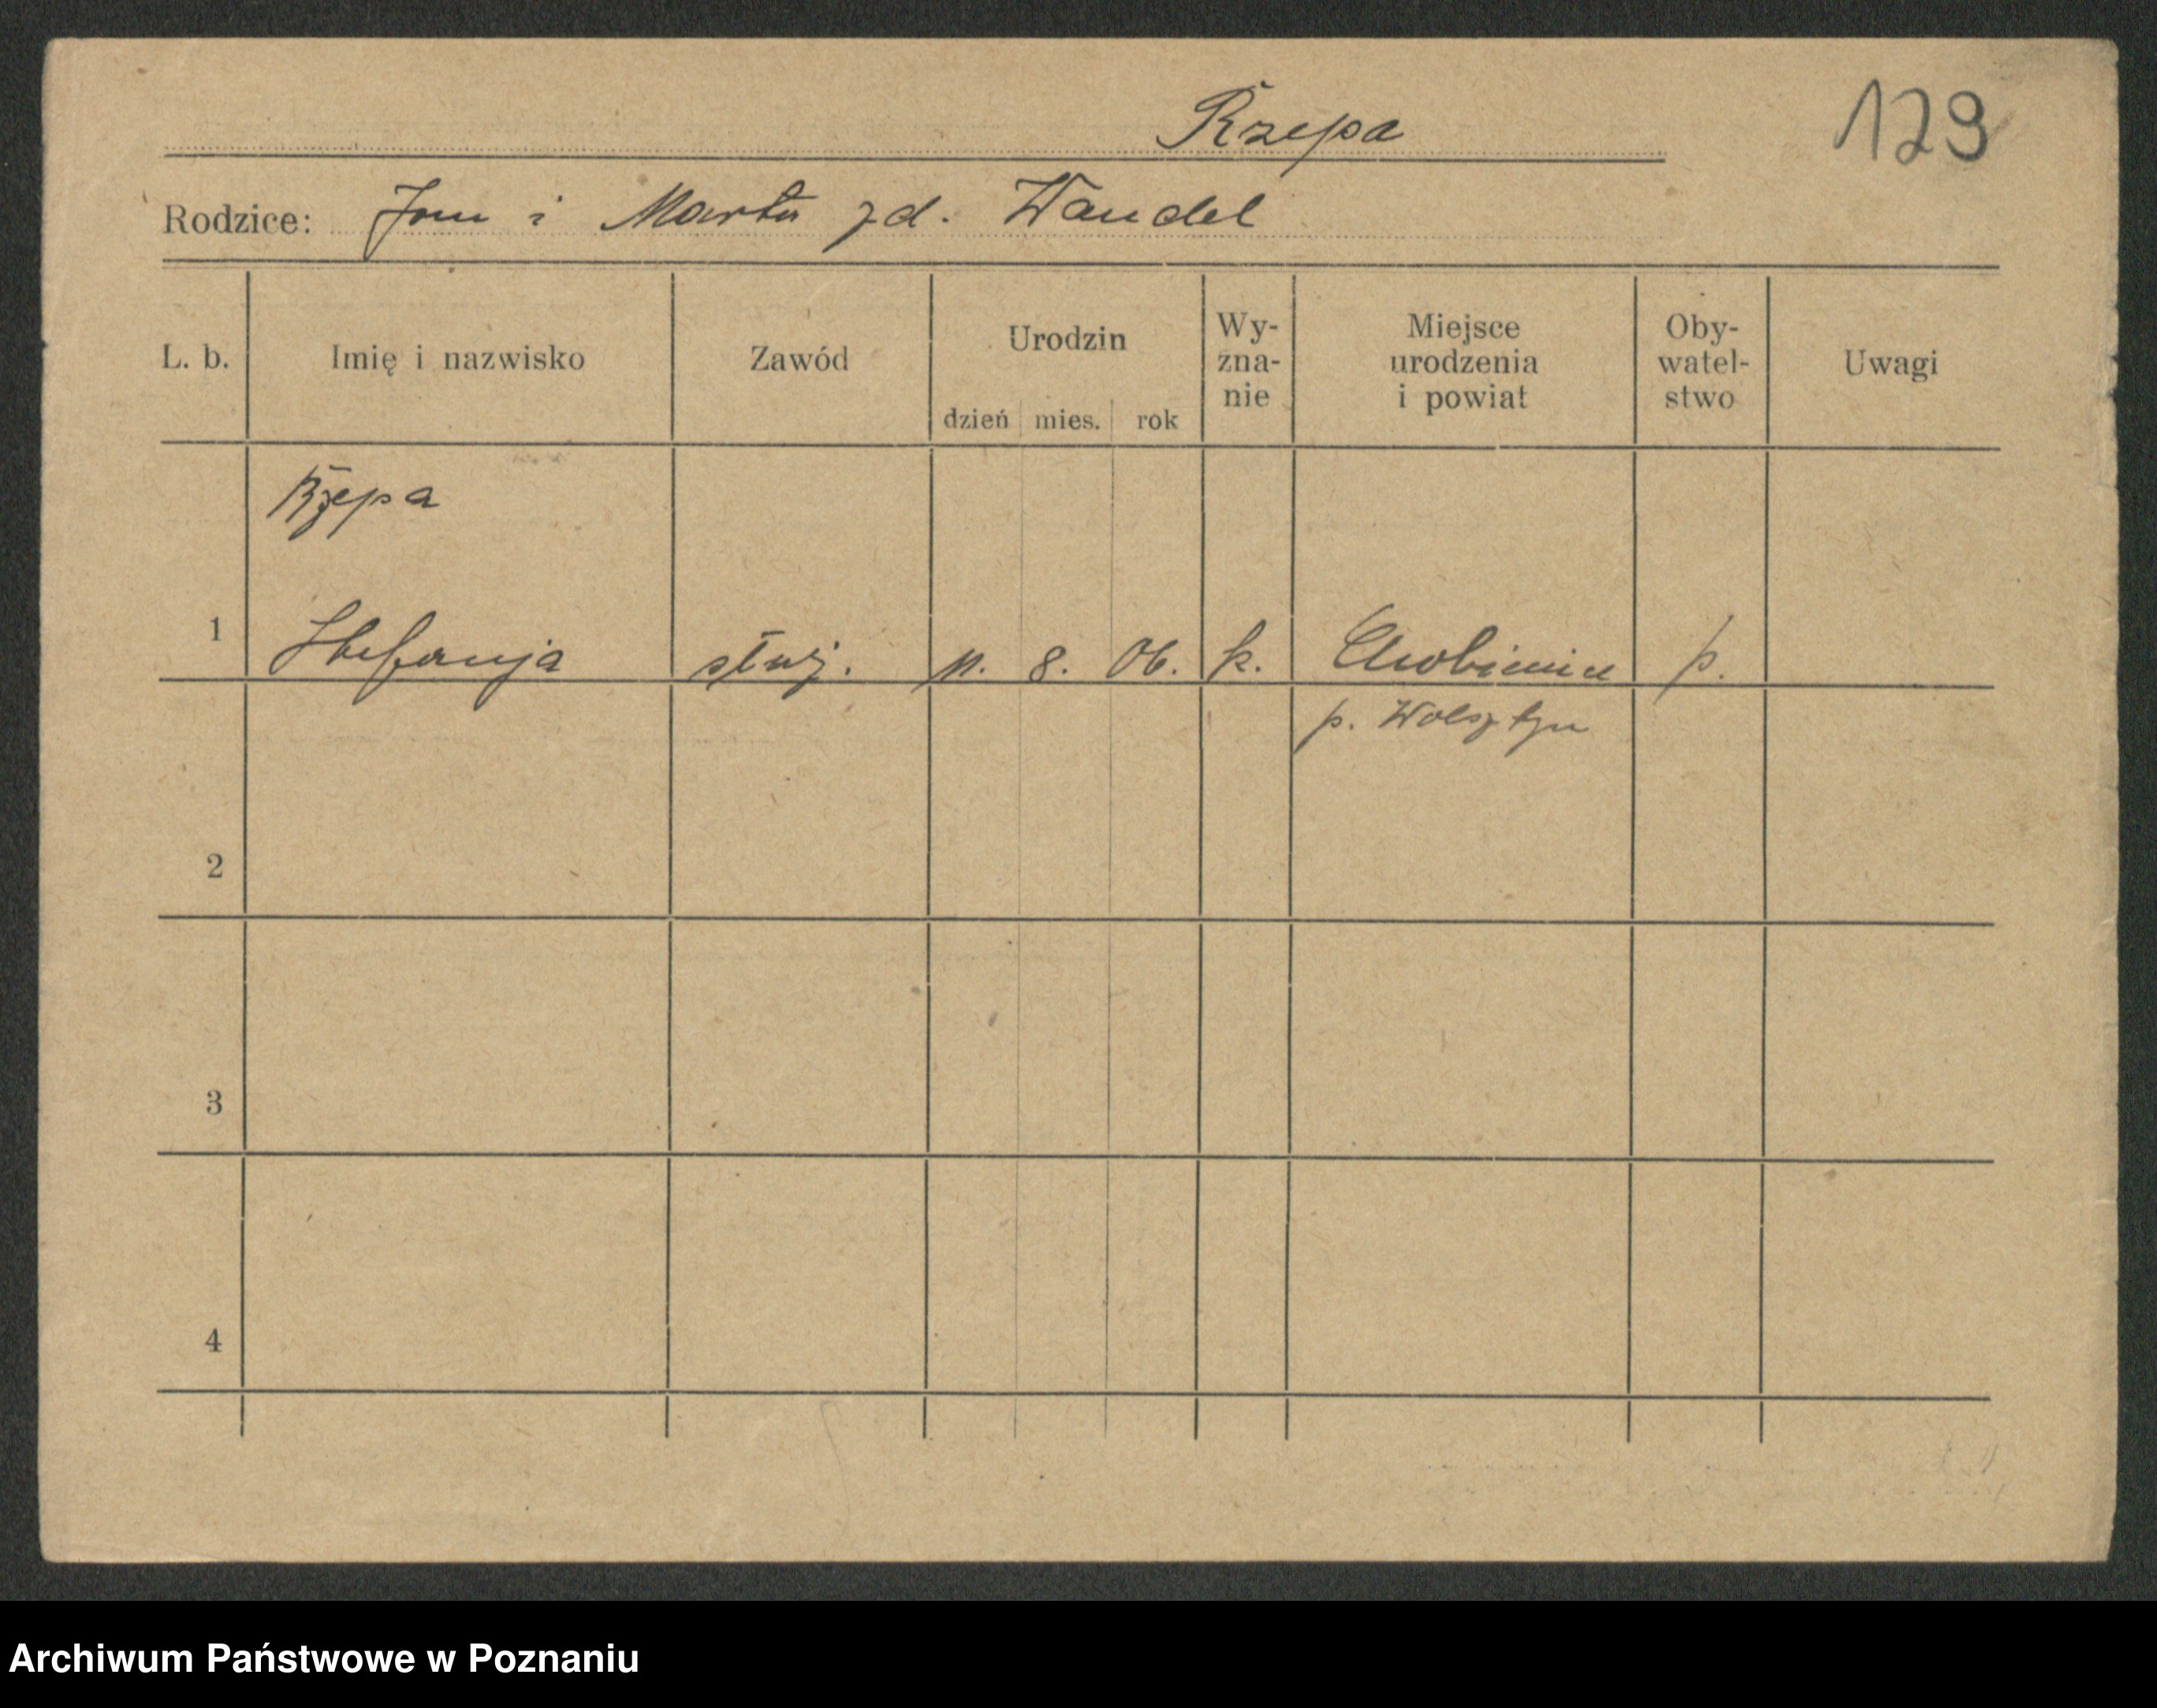 Rzepa
129
Rodzice: Jan i Marta zd. Wandel
L. b. Imię i nazwisko Zawód Urodzin dzień mies. rok Wy-zna-nie Miejsce urodzenia i powiat Oby-watel-stwo Uwagi
Rzepa
1 Stefanja służ. 11. 8. 06. k. Chobienice p.
p. Wolsztyn
2
3
4
Archiwum Państwowe w Poznaniu